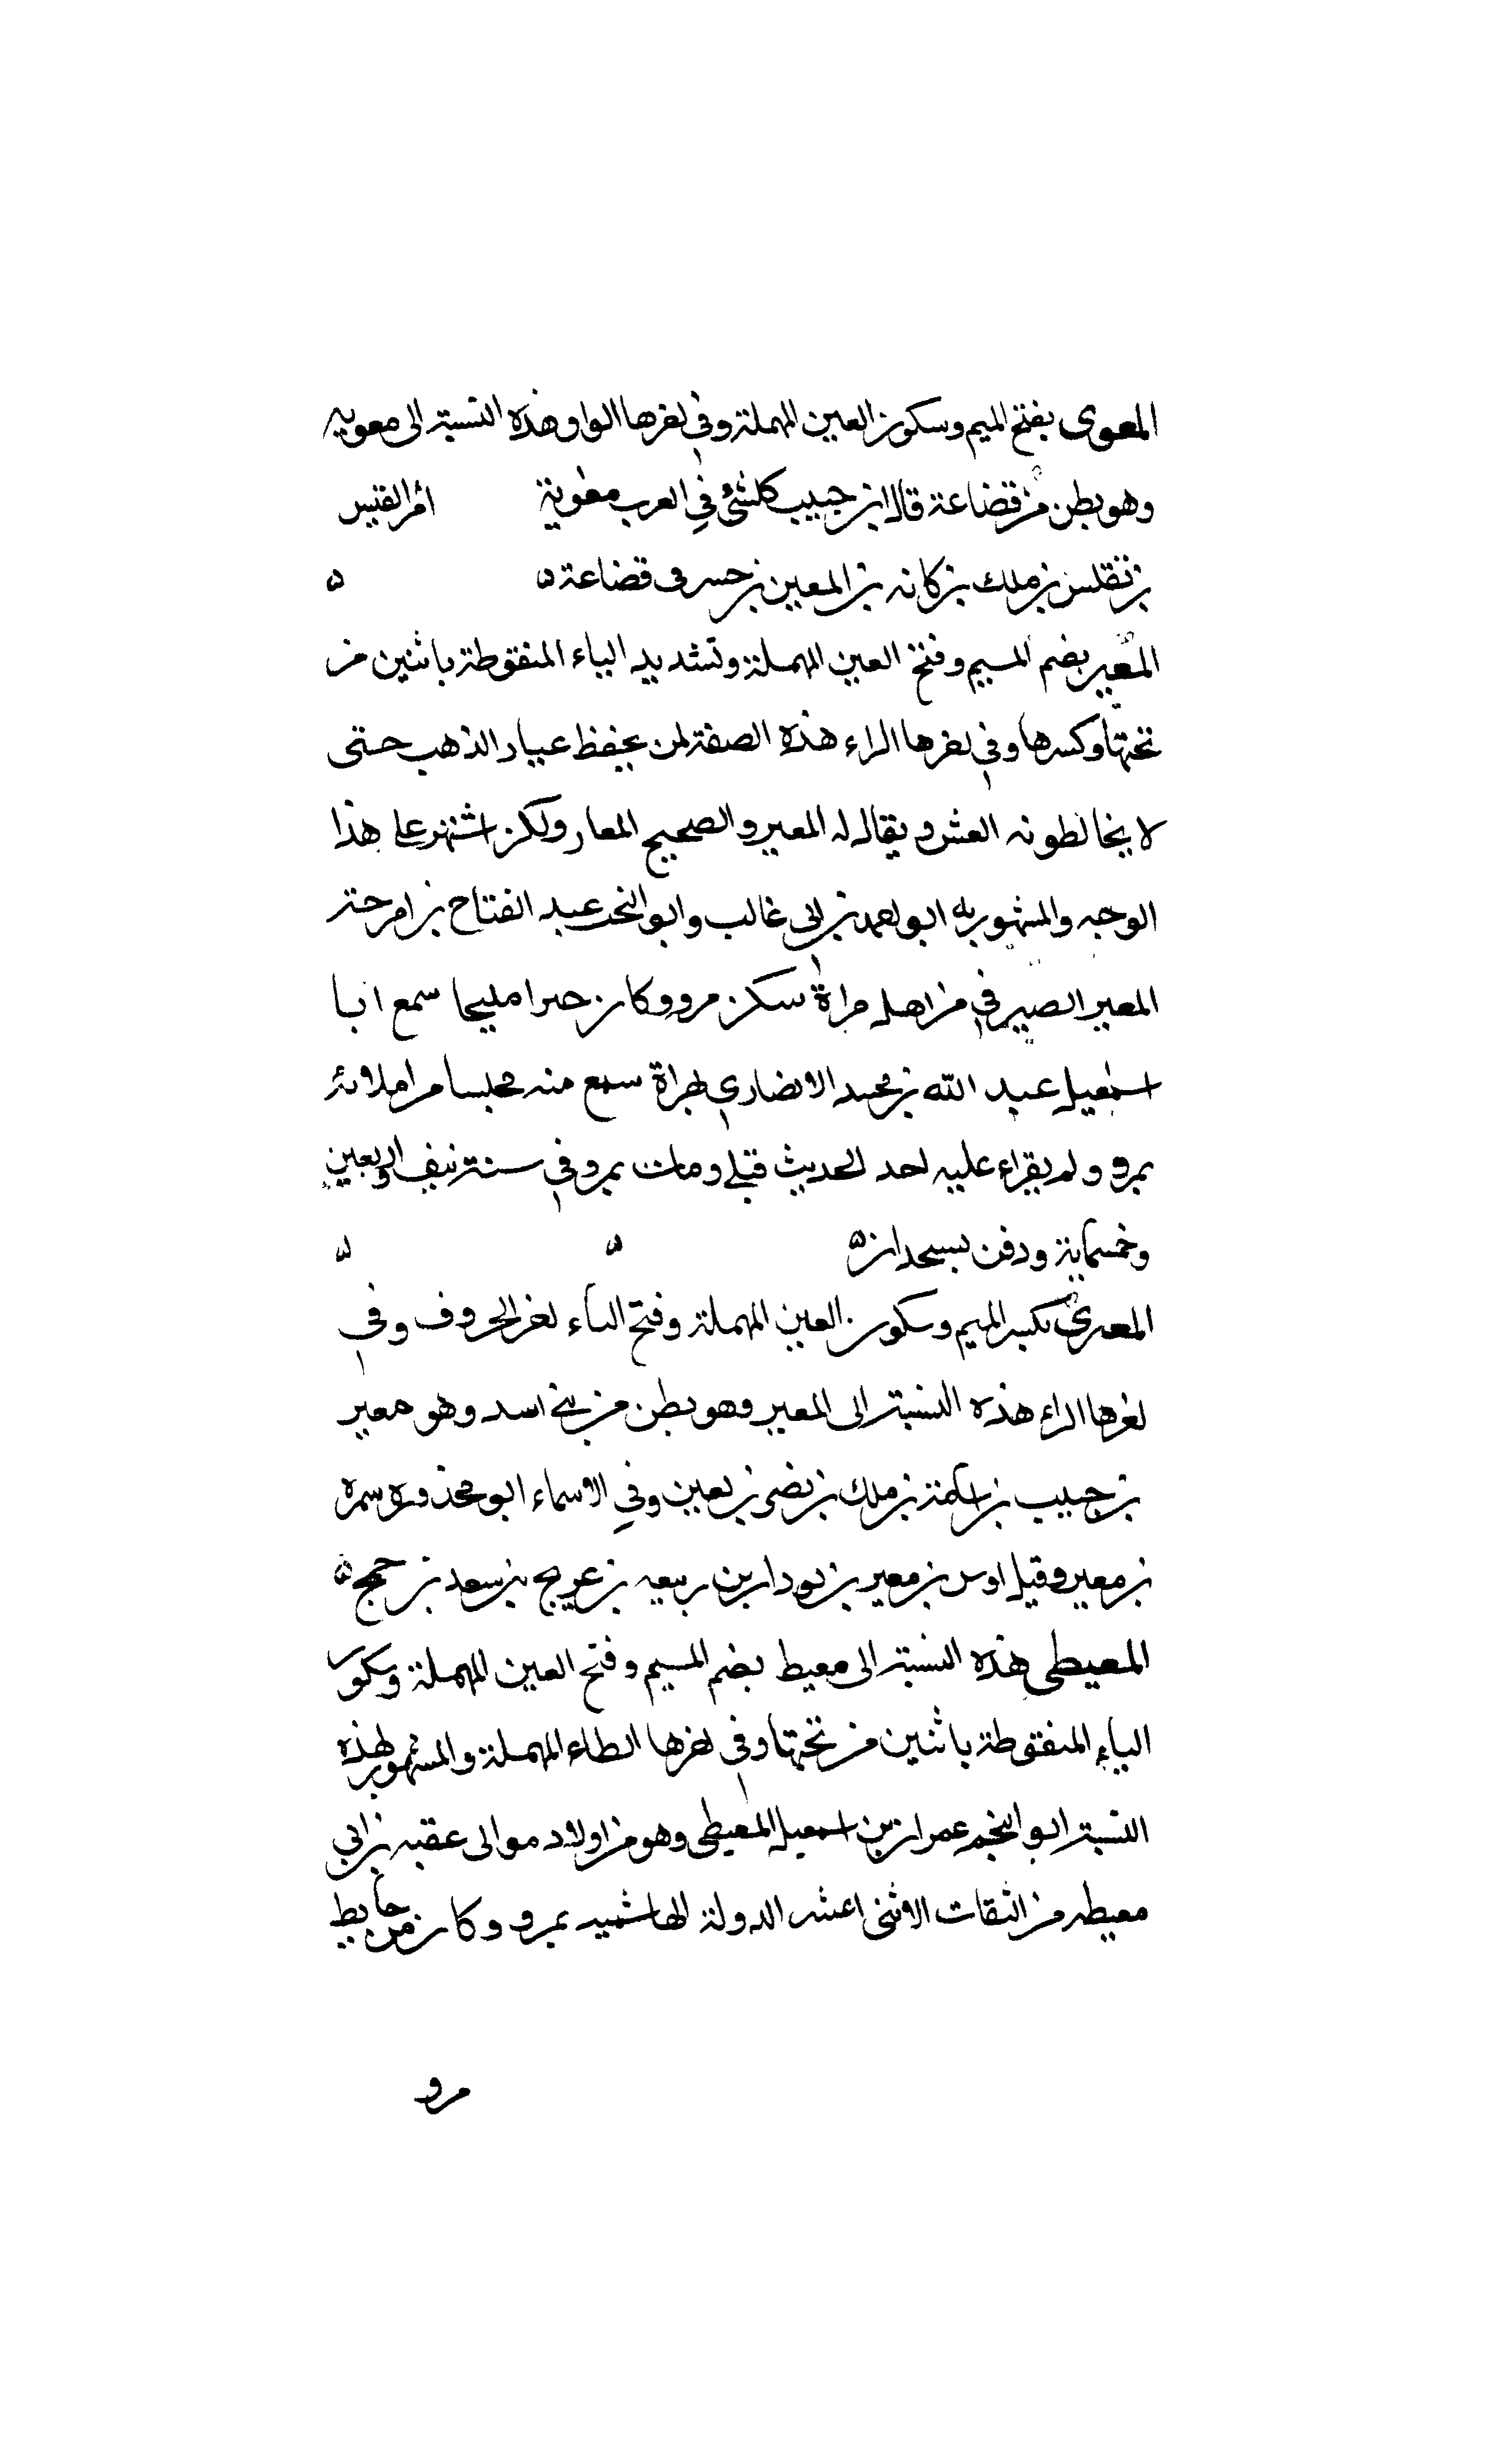 المعوى بفتح الميم وسكون العين المهملة وفى اخرها الواو هذه النسبة الى معويه
وهو بطن من قضاعة قال ابن حبيب كلشئ في العرب معوية امر القيس
بن ملك بن كانه بن المعين بن حسر فى قضاعة ه ه
المعير بضم الميم وفتح العين المهملة وتشديد الياء المنقوطة باثنين من
تحتها وكسرها وفي اخرها الراء هذه الصفة لمن يحفظ عيار الذهب حتى
لا يخالطونه الغش ويقال له المعير والصحيح المعار ولكن اشتهر على هذا
الوجه والمشهور به ابو احمد بن ابى غالب وابو عبد الفتاح بن اميرجة
المعير الصيرفي من اهل هراة سكن مرو وكان مليحا سمع ابا
اسمعيل عبد الله بن محمد الانصاري بهراة سمع منه مجلسا من املائه
بمرو ولم يقراء عليه احد الحديث قبلى ومات بمرو فى سنة نيف واربعين
وخمسماية ودفن بسجدان ه ه ه
المعيرى بكسر الميم وسكون العين المهملة وفتح الياء اخر الحروف وفى
اخرها الراء هذه النسبة الى المعير وهو بطن من بني اسد وهو معير
بن حبيب بن اسامة بن ملك بن نصر بن قعين وفي الاسماء ابو محذورة سمرة
بن معير وقيل اوس بن معير بن لوذان بن ربيعه بن عريج بن سعد بن جمح ه
المعيطى هذه النسبة الى معيط بضم الميم وفتح العين المهملة وسكون
الياء المنقوطة باثنين من تحتها وفى اخرها الطاء المهملة والمشهور بهذه
النسبة ابو النجم عمران بن اسمعيل المعيطى وهو من اولاد موالى عقبه بن ابي
معيط من الثقات الاثنى عشر الدولة الهاشميه بمرو وكان من حايط
مرو